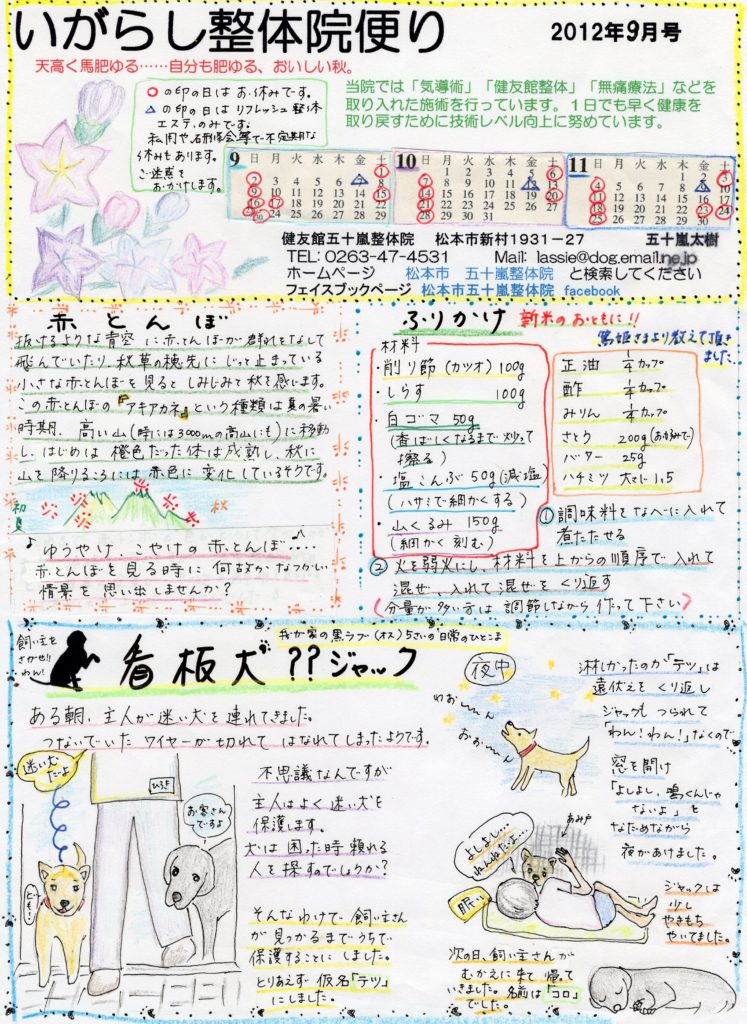 いがらし整体院便り
2012年9月号
天高く馬肥ゆる……自分も肥ゆる、おいしい秋。
○の印の日はお休みです。
△の印の日はリフレッシュ整体
エステ、のみです。
休みもあります。
ご迷惑を
おかけします。
当院では「気導術」「健友館整体」「無痛療法」などを
取り入れた施術を行っています。1日でも早く健康を
取り戻すために技術レベル向上に努めています。
9 日 月 火 水 木 金 土
10 日 月 火 水 木 金 土
11 日 月 火 水 木 金 土
健友館五十嵐整体院 松本市新村1931－27 五十嵐太樹
TEL: 0263-47-4531 Mail: lassie@dog.email.ne.jp
ホームページ 松本市 五十嵐整体院 と検索してください
フェイスブックページ 松本市五十嵐整体院 facebook
赤とんぼ
抜けるような青空に赤とんぼが群れをなして
飛んでいたり、秋草の穂先にじっと止まっている
小さな赤とんぼを見るとしみじみと秋を感います。
この赤とんぼの『アキアカネ』という種類は夏の暑い
時期、高い山(時には3000mの高山にも)に移動
し、はじめは橙色だった体は成熟し、秋に
山を降りるころには赤色に変化しているそうです。
初夏
秋
♪ゆうやけ、こやけの赤とんぼ……
赤とんぼを見る時に何故かなつかしい
情景を思い出しませんか？
ふりかけ 新米のおともに!!
篤姫さまより教えて頂き
ました
材料
・削り節(カツオ) 100g
・しらす 100g
・白ゴマ 50g
(香ばしくなるまで炒って
擦る)
・塩こんぶ 50g(減塩)
(ハサミで細かくする)
・山くるみ 150g
(細かく刻む)
正油 1/4カップ
酢 1/4カップ
みりん 1/4カップ
さとう 200g(お好みで)
バター 25g
ハチミツ 大さじ1.5
①調味料をなべに入れて
煮たたせる
②火を弱火にし、材料を上からの順序で入れて
混ぜ、入れて混ぜをくり返す
(分量が多い方は調節しながら作って下さい)
飼い主を
さがせ!!
わん!
看板犬??ジャック
我が家の黒ラブ(オス)5さいの日常のひとこま
ある朝、主人が迷い犬を連れてきました。
つないでいたワイヤーが切れてはなれてしまったようです。
迷い犬
だよ
ひろき
お客さん
ですよ
ども!
不思議なんですが
主人はよく迷い犬を
保護します。
犬は困った時頼れる
人を探すのでしょうか？
そんなわけで飼い主さん
が見つかるまでうちで
保護することにしました。
とりあえず仮名「テツ」
にしました。
夜中
わお〜〜ん
おお〜〜ん
淋しかったのか「テツ」は
遠伏えをくり返し
ジャックもつられて
「わん！わん！」なくので
窓を開け
「よしよし、鳴くんじゃ
ないよ」と
なだめながら
夜があけました。
あみ戸
よしよし…
ねんねだよ…
眠い
ジャックは
少し
やきもち
やいてました。
次の日、飼い主さんが
むかえに来て帰って
いきました。名前は「コロ」
でした。